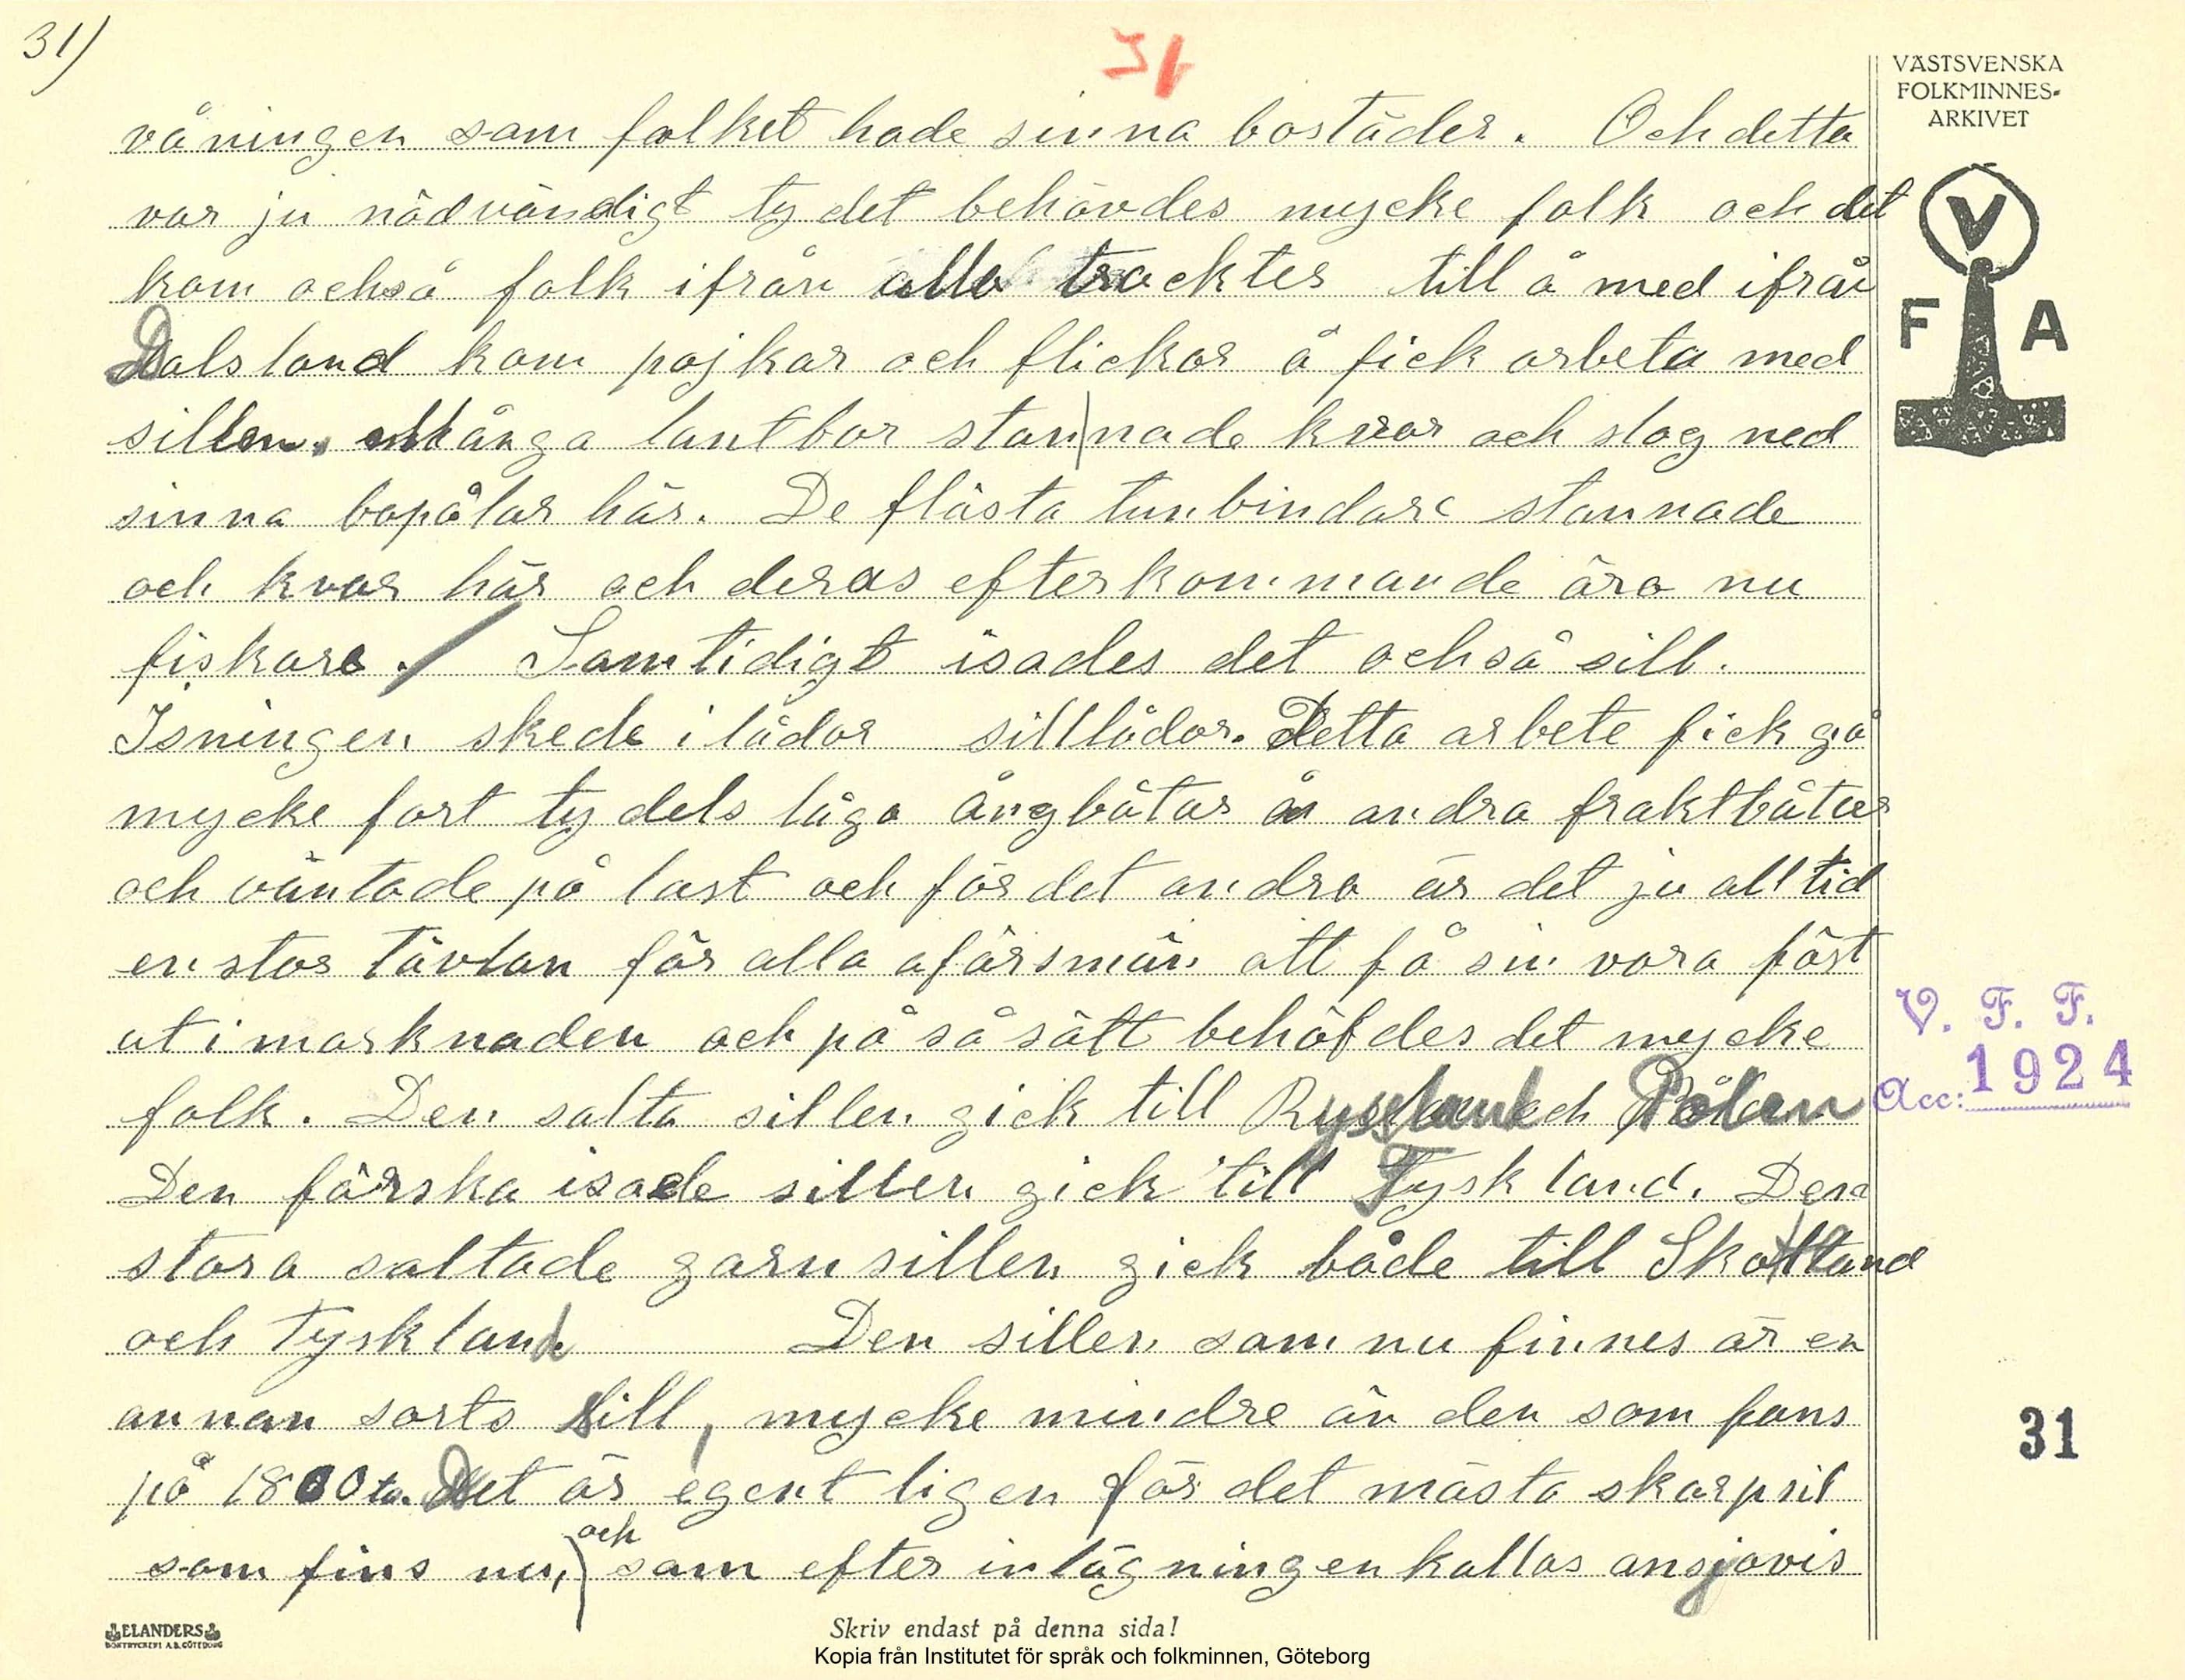 31)
31
VÄSTSVENSKA
FOLKMINNES-
ARKIVET
våningen som folket hade sinna bostäder. Och detta
var ju nödvändigt ty det behövdes mycke folk och det
kom också folk ifrån alla trackter till å med ifrån
V
F A
Dalsland kom pojkar och flickor å fick arbeta med
sillen. Många lantbor stannade kvar och slog ned
sinna bopålar här. De flästa tunbindare stannade
och kvar här och deras efterkommande äro nu
fiskare. Samtidigt isades det också sill.
Isningen skede i lådor sillådor. Detta arbete fick gå
mycke fort ty dels låga ångbåtar å andra fraktbåtar
och väntade på last och för det andra är det ju alltid
en stor tävlan för alla afärsmän att få sin vara först
ut i marknaden och på så sätt behöfdes det mycke
V. F. F.
Acc: 1924
folk. Den salta sillen gick till Ryssland och Pålen
Den färska isade sillen gick till Tyskland. Den
stora saltade garnsillen gick både till Skottland
och Tyskland Den sillen som nu finnes är en
annan sorts Sill, mycke mindre än den som fans
31
på 1800 ta. Det är egentligen för det mästa skarpsil
som fins nu, och som efter inlägningen kallas ansjovis
ELANDERS
BOKTRYCKERI A.B. GÖTEBORG
Skriv endast på denna sida!
Kopia från Institutet för språk och folkminnen, Göteborg